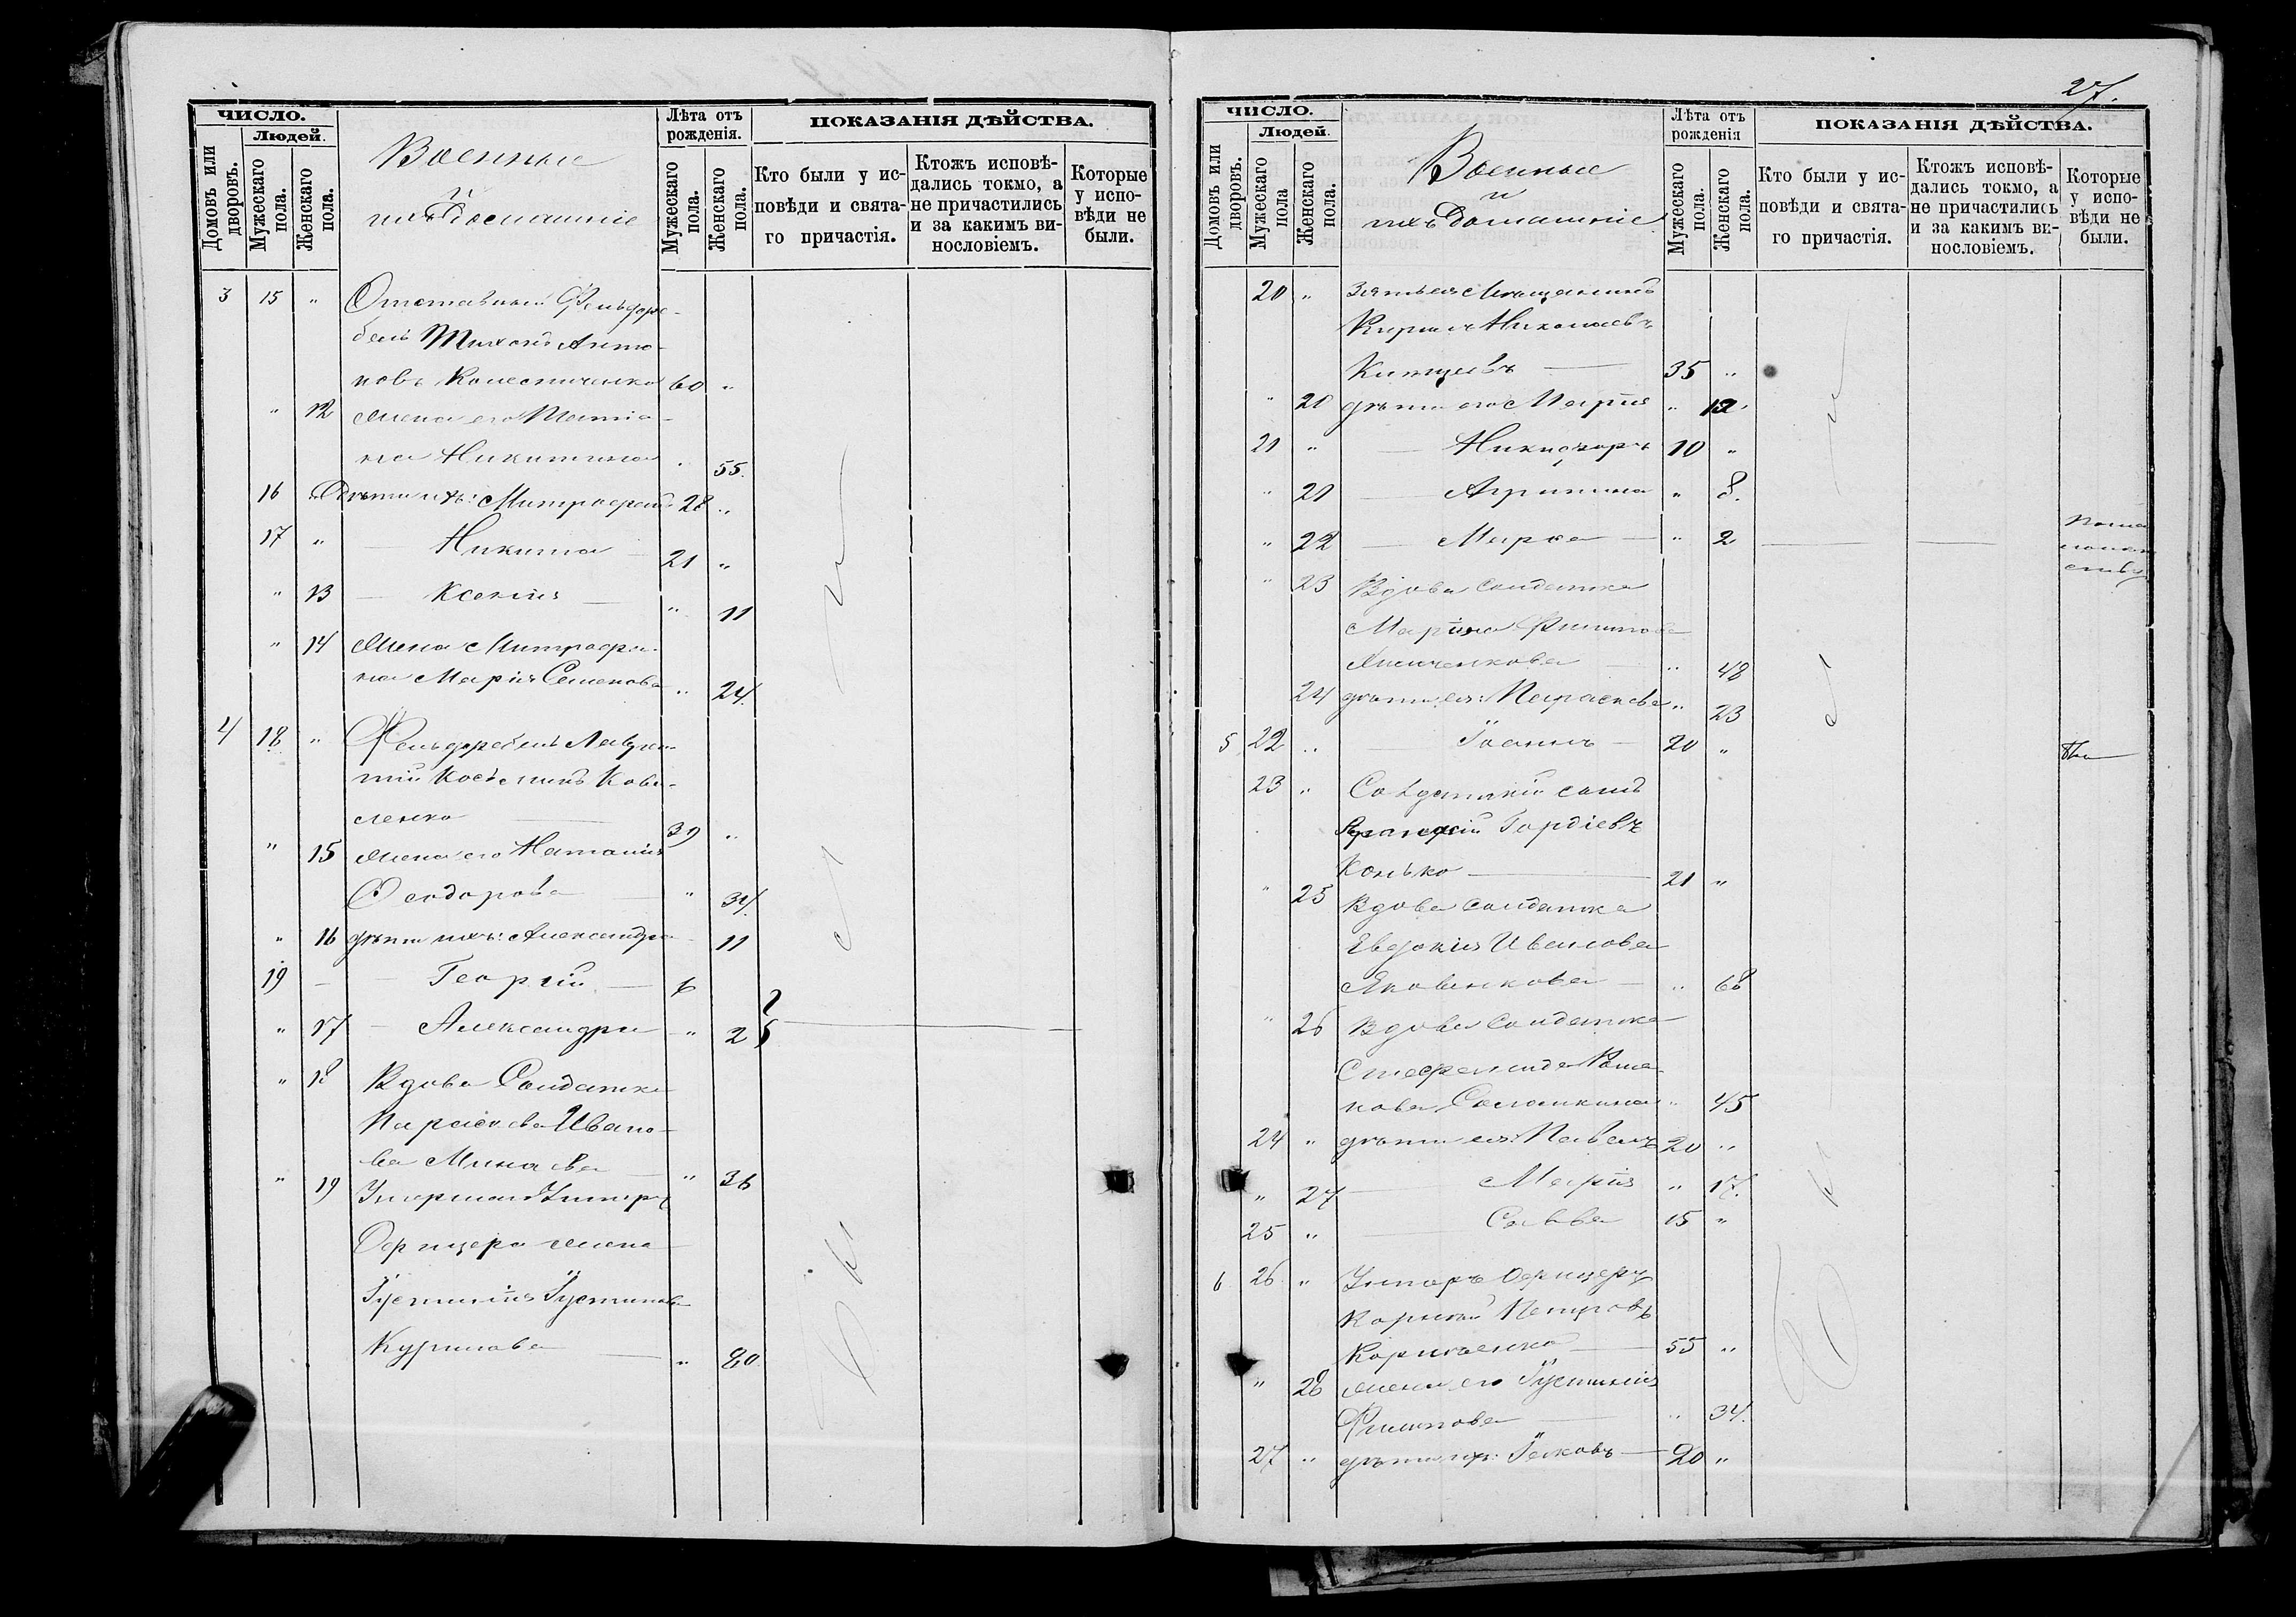 ЧИСЛО.
Людей.
Домовъ или дворовъ.
Мужескаго пола.
Женскаго пола.
Военные
и
ихъ домашніе
Лѣта отъ рожденія.
Мужескаго пола.
Женскаго пола.
ПОКАЗАНІЯ ДѢЙСТВА.
Кто были у ис-
повѣди и свята-
го причастія.
Ктожъ исповѣ-
дались токмо, а
не причастились
и за какимъ ви-
нословіемъ.
Которые
у испо-
вѣди не
были.
3 15 " Отставный Фельдфе-
бель Тихонъ Анто-
новъ Колесниченко 60 "
" 12 Жена его Татіа-
на Никитина " 55.
16 " Дѣти ихъ: Митрофанъ 28 "
17 " — Никита — 21 "
" 13 — Ксенія — " 11
" 14 Жена Митрофа-
на Марія Семенова " 24.
4 18 " Фельдфебель Лаврен-
тій Ковa-
ленко — 39 "
" 15 Жена его Наталія
Ѳеодорова — " 34.
" 16 дѣти ихъ: Александра 11
19 — — Георгій — 6
" 17 — Александра " 2
" 18 Вдова Солдатка
Параскева Ивано-
ва Минаева — " 36
" 19 Умершаго Унтеръ
Офицера жена
Іустинія Іустинова
Курилова — " 80.
27.
ЧИСЛО.
Людей.
Домовъ или дворовъ.
Мужескаго пола
Женскаго пола.
Военные
и
ихъ домашніе
Лѣта отъ рожденія
Мужескаго пола.
Женскаго пола.
ПОКАЗАНІЯ ДѢЙСТВА.
Кто были у ис-
повѣди и свята-
го причастія.
Ктожъ исповѣ-
дались токмо, а
не причастились
и за какимъ ви-
нословіемъ.
Которые
у испо-
вѣди не
были.
20 " Зять ея Мѣщанинъ
Кирилъ Николаевъ
— 35 "
" 20 дѣти его Марія " 12.
21 " — Никифоръ 10 "
" 21 — Агрипина " 8.
" 22 — Марѳа — " 2 — —
" 23 Вдова Солдатка
Марина Филипова
— " 48
24 дѣти ея: Параскева " 23
5 22 " — Іоаннъ — 20 "
23 " Солдатскій сынъ
Гордіевъ
Конько — 21 "
" 25 Вдова Солдатка
Евдокія Иванова
Яковенкова — " 68
" 26 Вдова Солдатка
Стефанида Рома-
нова Соломкина " 45
24 " дѣти ея: Павелъ 20 "
" 27 — Марія " 17.
25 " — Савва 15 "
6 26 " Унтеръ Офицеръ
Корнилій Петровъ
Корніенко — 55 "
" 28 Жена его Іустинія
Филипова — " 34.
27 " дѣти ихъ: Іаковъ — 20 "